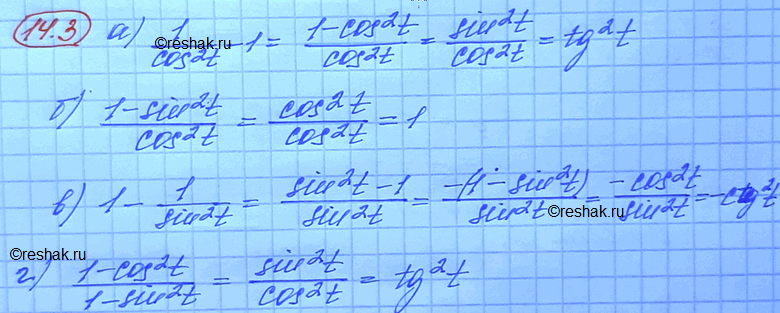 14.3 а) 1/cos²t - 1 = (1-cos²t)/cos²t = sin²t/cos²t = tg²t
©reshak.ru
б) (1-sin²t)/cos²t = cos²t/cos²t = 1
в) 1 - 1/sin²t = (sin²t-1)/sin²t = -(1-sin²t)/sin²t = -cos²t/sin²t = -ctg²t
©reshak.ru
©reshak.ru
г) (1-cos²t)/(1-sin²t) = sin²t/cos²t = tg²t